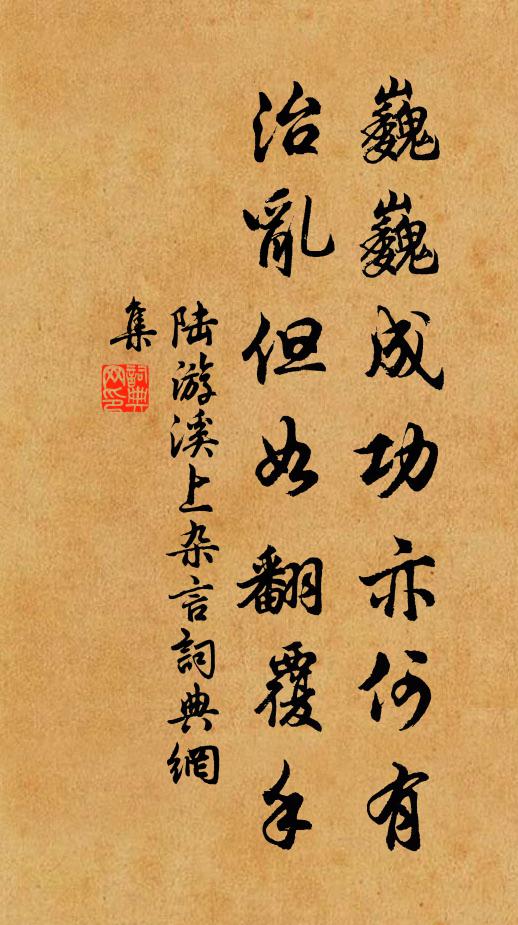 巍巍成功亦何有
治亂但如翻覆手
陆游溪上杂言詞典網
集
詞典
网印